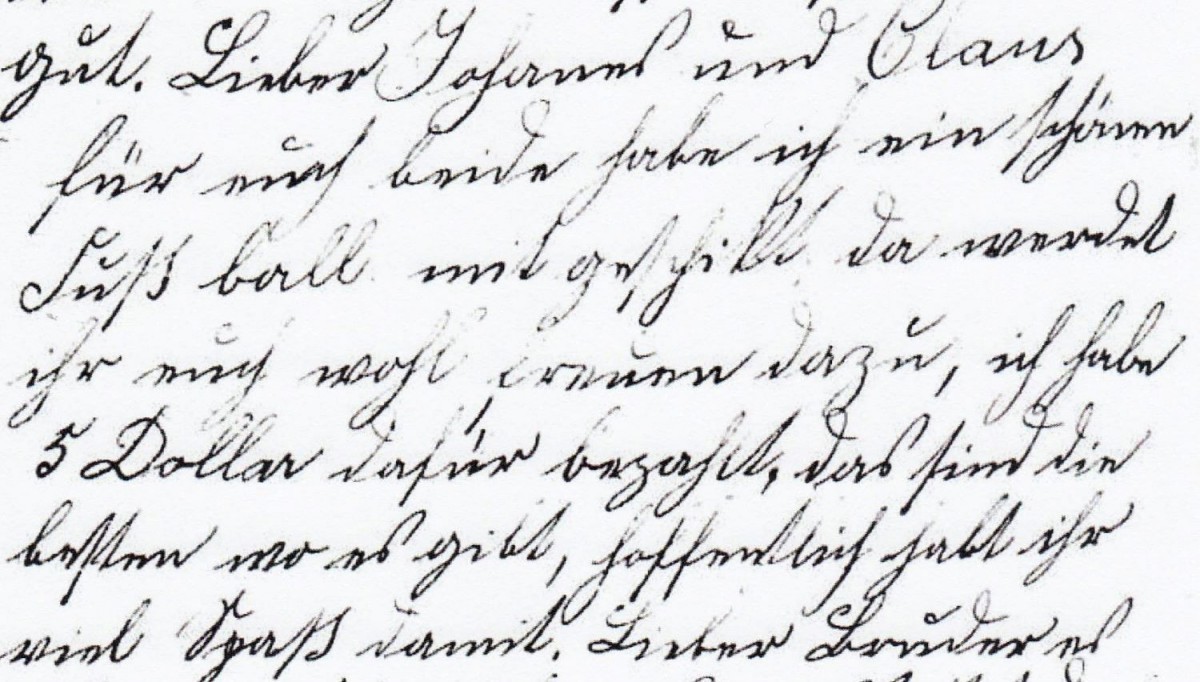 gut. Lieber Johanes und Claus
für euch beide habe ich ein schönen
Fuß ball mit geschikt da werdet
ihr euch wohl freuen dazu, ich habe
5 Dollar dafür bezahlt, das sind die
besten wo es gibt, hoffentlich habt ihr
viel Spaß damit. Lieber Bruder es